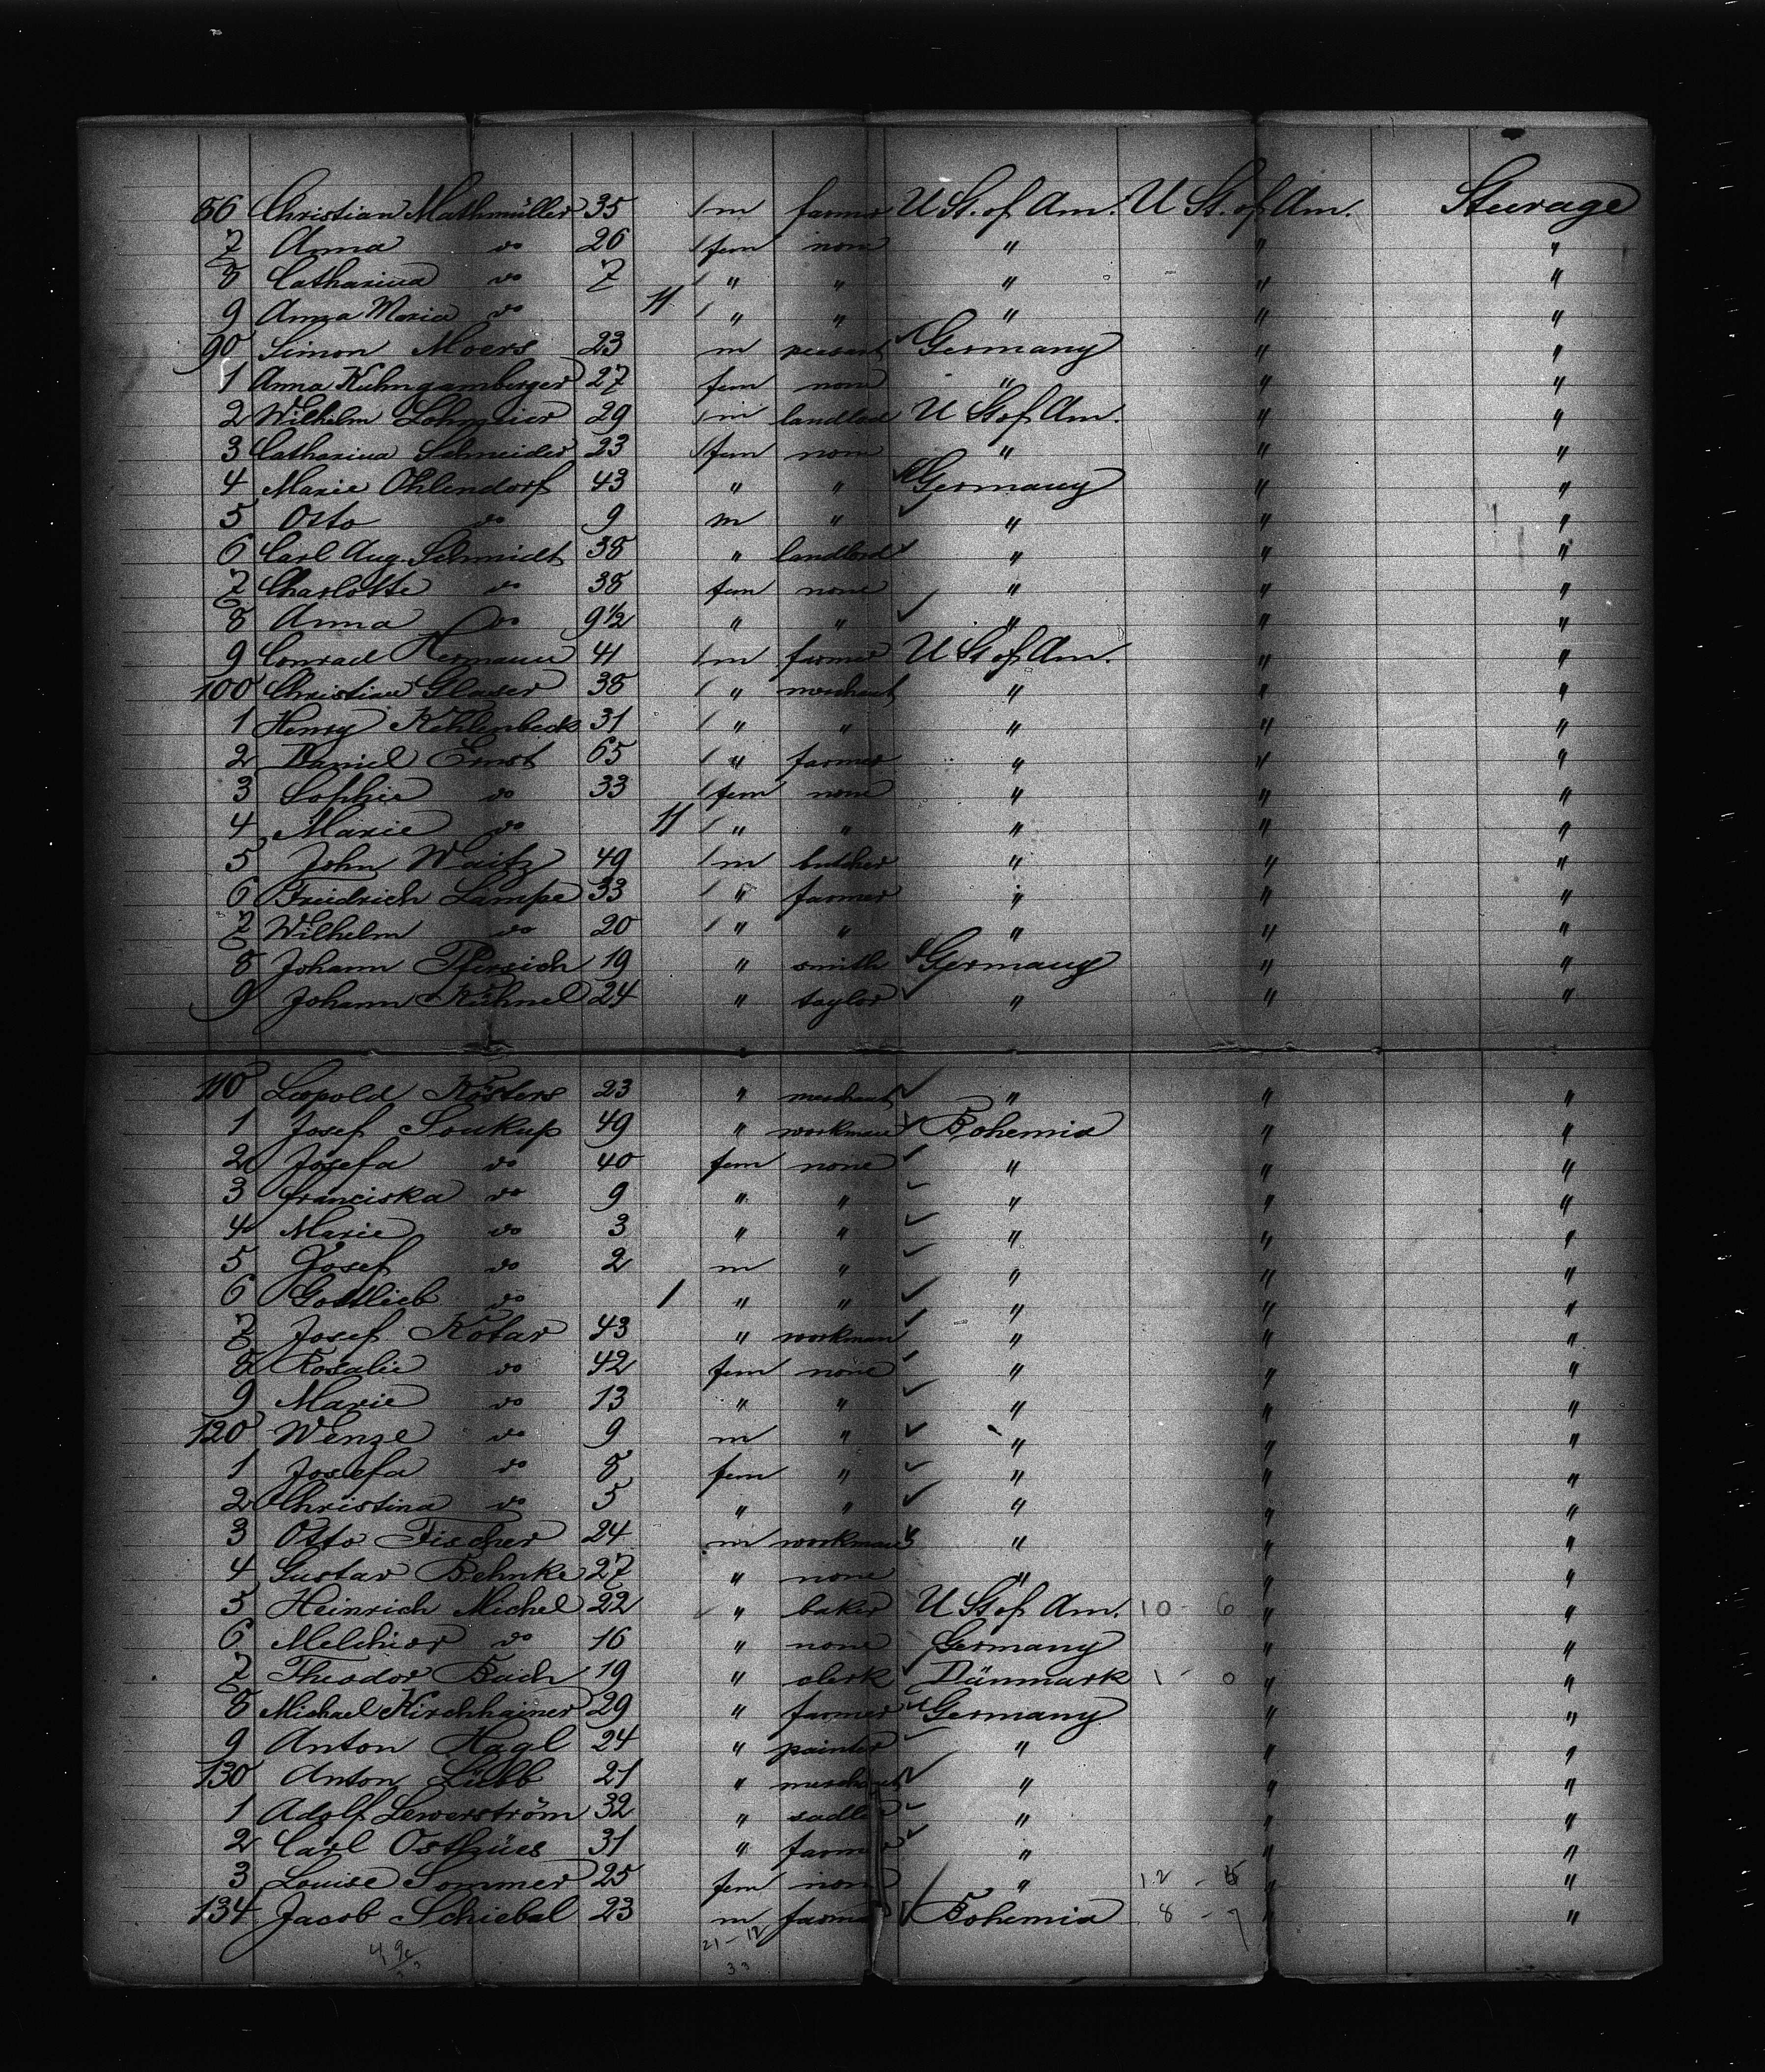 86 Christian Mathmüller 35 / m farmer U St. of Am. U St. of Am. Steerage
7 Anna do 26 / fem none " " "
8 Catharina do 7 / " " " " "
9 Anna Maria do 11 / " " " " "
90 Simon Moers 23 m peasant Germany " "
1 Anna Kuhngamberger 27 fem none " " "
2 Wilhelm Lohmeier 29 / m landlod U St of Am. " "
3 Catharina Schneider 23 / fem none " " "
4 Marie Ohlendorf 43 " " Germany " "
5 Otto do 9 m " " " "
6 Carl Aug. Schmidt 38 " landlord " " "
7 Charlotte do 38 fem none " " "
8 Anna do 9 1/2 " " " " "
9 Conrad Hermann 41 / m farmer U St of Am. " "
100 Christian Glaser 38 / " merchant " " "
1 Henry Kohlenbeck 31 / " " " " "
2 Daniel Ernst 65 / " farmer " " "
3 Sophie do 33 / fem none " " "
4 Marie do 11 / " " " " "
5 John Waitz 49 / m butcher " " "
6 Friedrich Lampe 33 / " farmer " " "
7 Wilhelm do 20 / " " " " "
8 Johann Pfersich 19 " smith Germany " "
9 Johann Kühnel 24 " taylor " " "
110 Leopold Kösters 23 " merchant " " "
1 Josef Soukup 49 " workman Bohemia " "
2 Josefa do 40 fem none " " "
3 Franciska do 9 " " " " "
4 Marie do 3 " " " " "
5 Josef do 2 m " " " "
6 Gottlieb do 1 " " " " "
7 Josef Kobar 43 " workman " " "
8 Rosalie do 42 fem none " " "
9 Marie do 13 " " " " "
120 Wenze do 9 m " " " "
1 Josefa do 8 fem " " " "
2 Christina do 5 " " " " "
3 Otto Fischer 24 m workman " " "
4 Gustav Behnke 27 " none " " "
5 Heinrich Michel 22 " baker U St of Am. 10 - 6 " "
6 Melchior do 16 " none Germany " "
7 Theodor Bach 19 " clerk Dänmark 1 - 0 " "
8 Michael Kirchhainer 29 " farmer Germany " "
9 Anton Hagl 24 " painter " " "
130 Anton Lübb 21 " merchant " " "
1 Adolf Lewerström 32 " sadler " " "
2 Carl Osthües 31 " farmer " " "
3 Louise Sommer 25 fem none " 12 - " "
134 Jacob Schiebal 23 m farmer Bohemia 8 - 7 " "
21 - 12
33